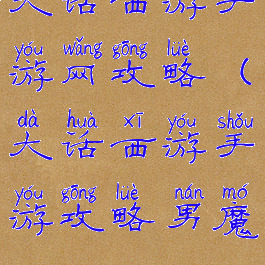 大话西游手
yóu wǎng gōng lüè
游网攻略（
dà huà xī yóu shǒu
大话西游手
yóu gōng lüè nán mó
游攻略男魔